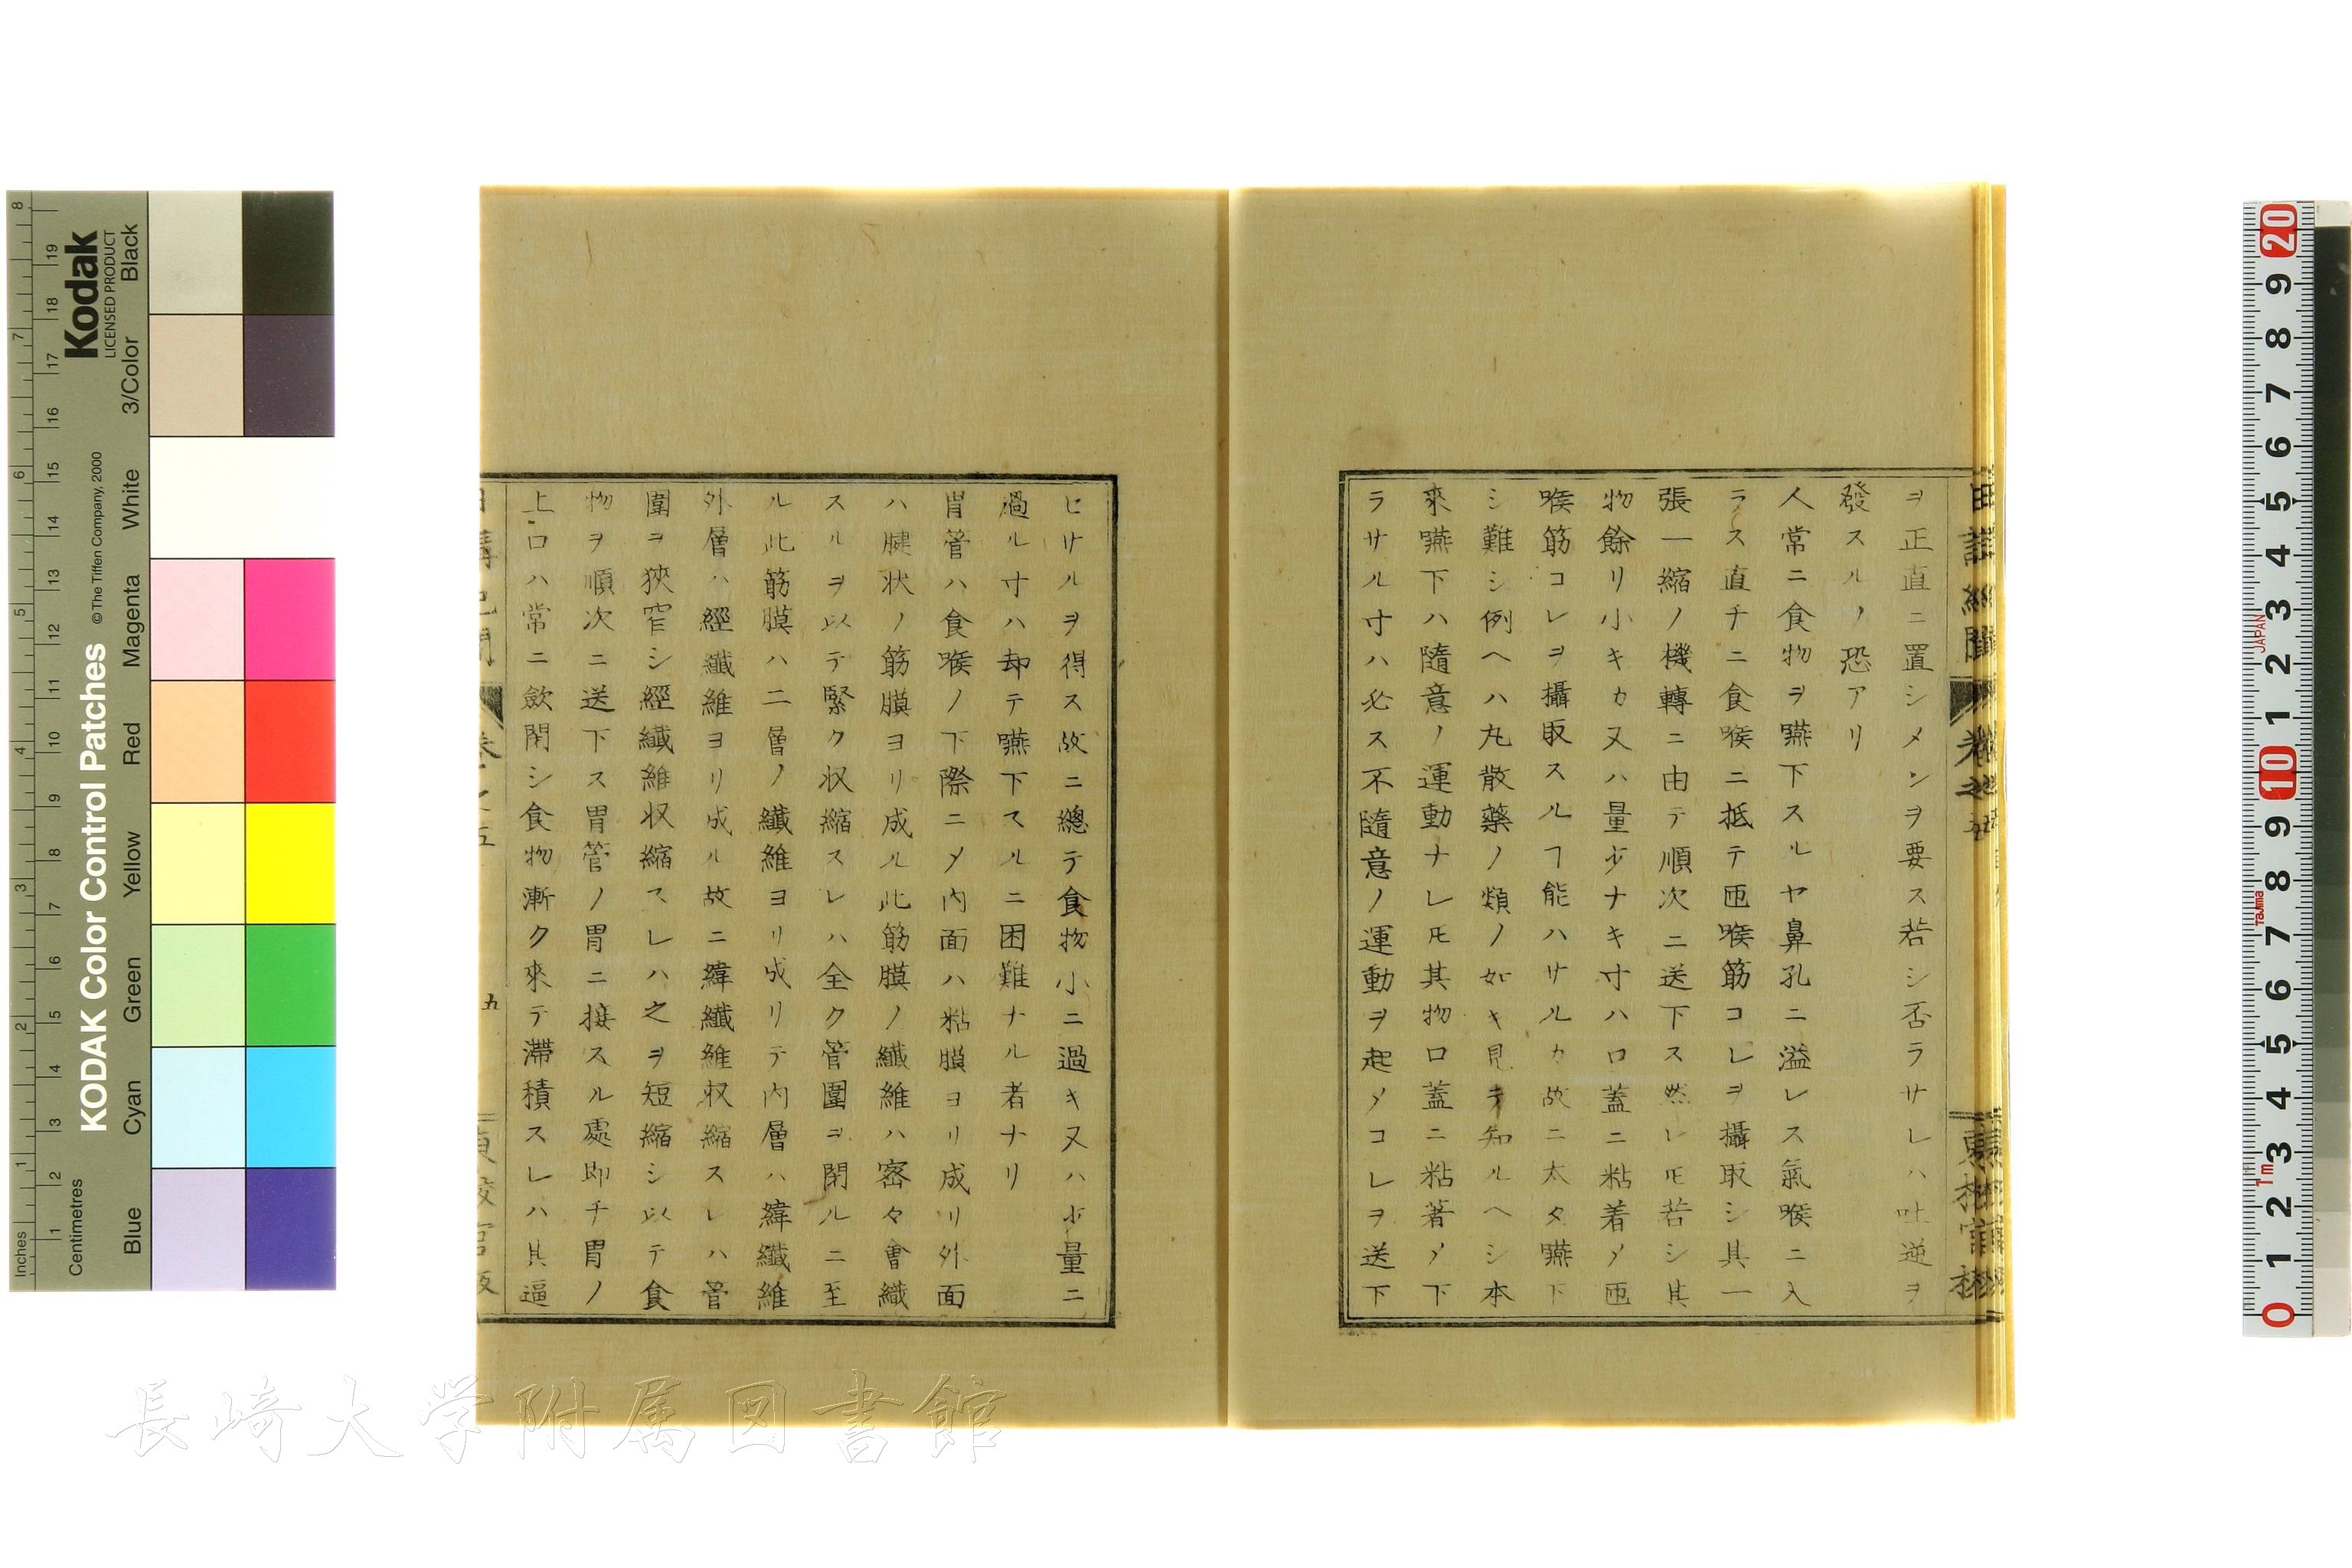 ヲ正直ニ置シメンヲ要ス若シ否ラサレハ吐逆ヲ
發スルノ恐アリ
人常ニ食物ヲ嚥下スルヤ鼻孔ニ溢レス氣喉ニ入
ラス直チニ食喉ニ抵テ匝喉筋コレヲ攝取シ其一
張一縮ノ機轉ニ由テ順次ニ送下ス然レ𪜈若シ其
物餘リ小キカ又ハ量少ナキ寸ハ口蓋ニ粘着〆匝
喉筋コレヲ攝取スルヿ能ハサルカ故ニ太タ嚥下
シ難シ例ヘハ丸散藥ノ類ノ如キ見テ知ルヘシ本
來嚥下ハ隨意ノ運動ナレ𪜈其物口蓋ニ粘著〆下
ラサル寸ハ必ス不隨意ノ運動ヲ起〆コレヲ送下
セサルヲ得ス故ニ總テ食物小ニ過キ又ハ少量ニ
過ル寸ハ却テ嚥下スルニ困難ナル者ナリ
胃管ハ食喉ノ下際ニ〆内面ハ粘膜ヨリ成リ外面
ハ腱状ノ筋膜ヨリ成ル此筋膜ノ纖維ハ密々會織
スルヲ以テ緊ク収縮スレハ全ク管圍ヲ閉ルニ至
ル此筋膜ハ二層ノ纖維ヨリ成リテ内層ハ緯纖維
外層ハ經纖維ヨリ成ル故ニ緯纖維収縮スレハ管
圍ヲ狹窄シ經纖維収縮スレハ之ヲ短縮シ以テ食
物ヲ順次ニ送下ス胃管ノ胃ニ接スル處即チ胃ノ
上口ハ常ニ歛閉シ食物漸ク來テ滯積スレハ其逼
卷之五
五
KODAK Color Control Patches
Kodak
LICENSED PRODUCT
© The Tiffen Company, 2000
Inches
Centimetres
Blue
Cyan
Green
Yellow
Red
Magenta
White
3/Color
Black
JAPAN
Tajima
1m
長崎大学附属図書館